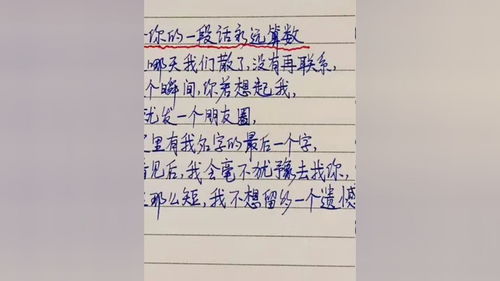 你的一段话永远算数
哪天我们散了,没有再联系,
个瞬间,你若想起我,
发一个朋友圈,
里有我名字的最后一个字,
见后,我会毫不犹豫去找你,
那么短,我不想留的一个遗憾